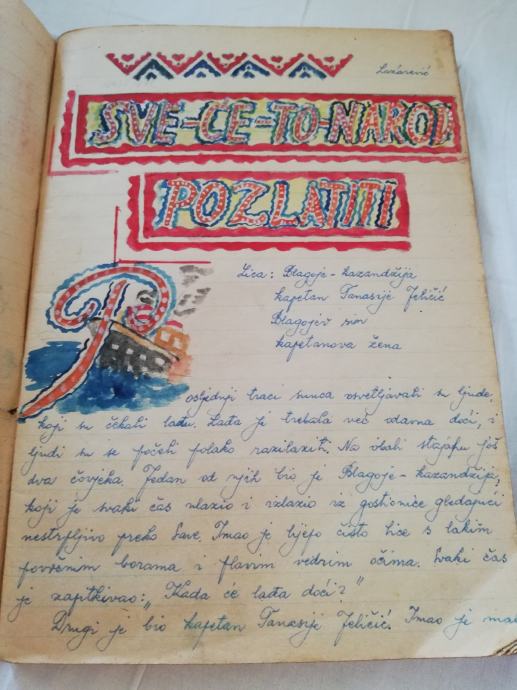 Lazarević
SVE-ĆE-TO-NAROD
POZLATITI
Lica: Blagoje - kazandžija
kapetan Tanasije Jeličić
Blagojev sin
kapetanova žena
Posljednji traci sunca osvetljavali su ljude,
koji su čekali lađu. Lađa je trebala već odavna doći, i
ljudi su se počeli polako razilaziti. Na obali stajahu još
dva čovjeka. Jedan od njih bio je Blagoje - kazandžija,
koji je svaki čas ulazio i izlazio iz gostionice gledajući
nestrpljivo preko Save. Imao je lijepo čisto lice s lakim
površnim borama i plavim vedrim očima. Svaki čas
je zapitkivao: „Kada će lađa doći?"
Drugi je bio kapetan Tanasije Jeličić. Imao je